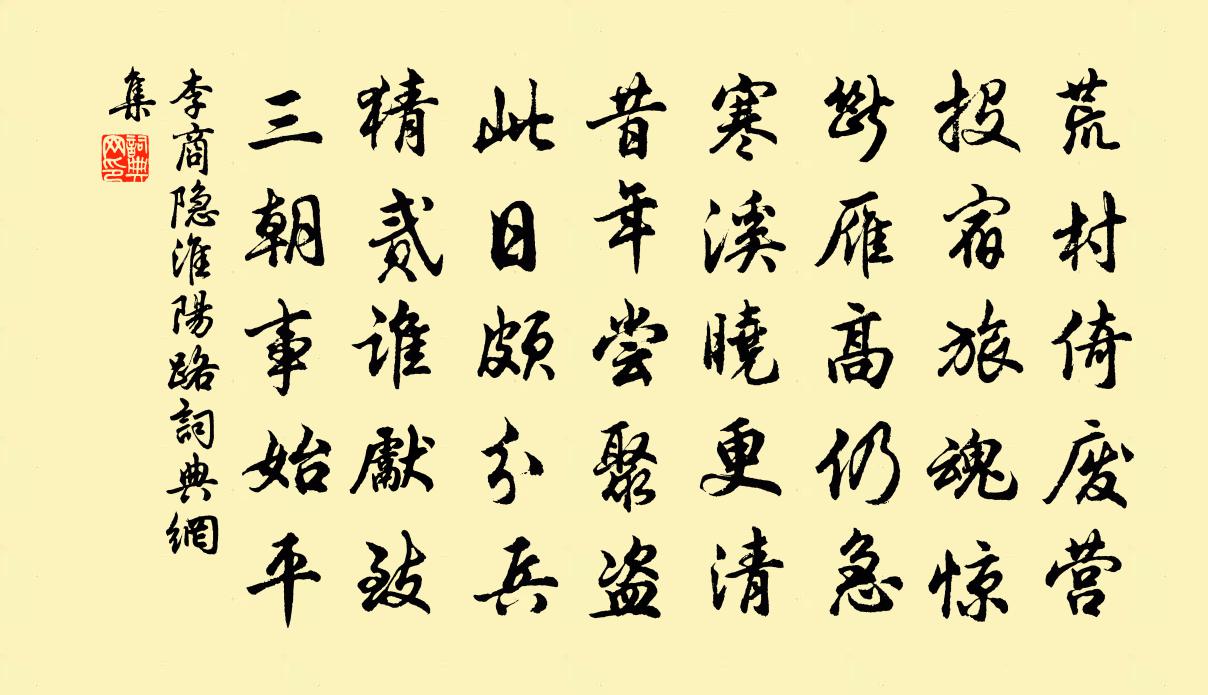 荒村倚废营
投宿旅魂惊
断雁高仍急
寒溪曉更清
昔年尝聚盗
此日颇分兵
猜贰谁獻致
三朝事始平
李商隐淮陽路詞典網
集
詞典
网印